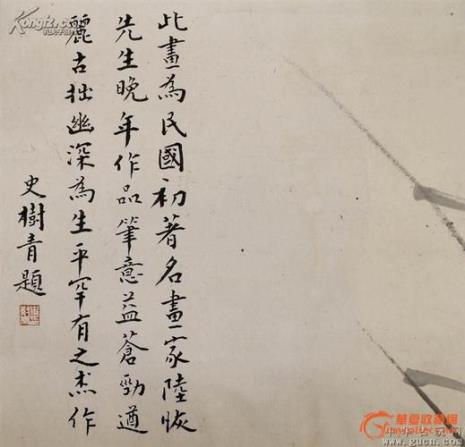 此畫為民國初著名畫家陸恢
先生晚年作品筆意益蒼勁遒
麗古拙幽深為生平罕有之杰作
史樹青題
Kongfz.com
華夏收藏網
www.gucn.com